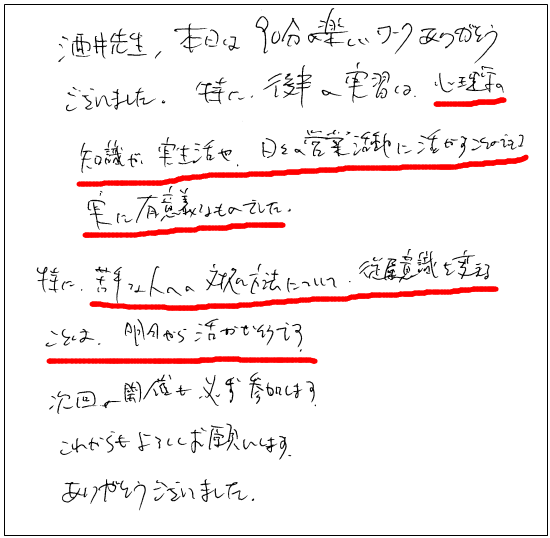 酒井先生,本日は90分の楽しいワークありがとう
ございました。特に、後半の実習は、心理学の
知識が実生活や、日々の営業活動に活かすことのできる
実に有意義なものでした。
特に、苦手な人への対処の方法について、従属意識を変える
ことは、明日から活かせそうです
次回の開催も必ず参加します
これからもよろしくお願いします。
ありがとうございました。